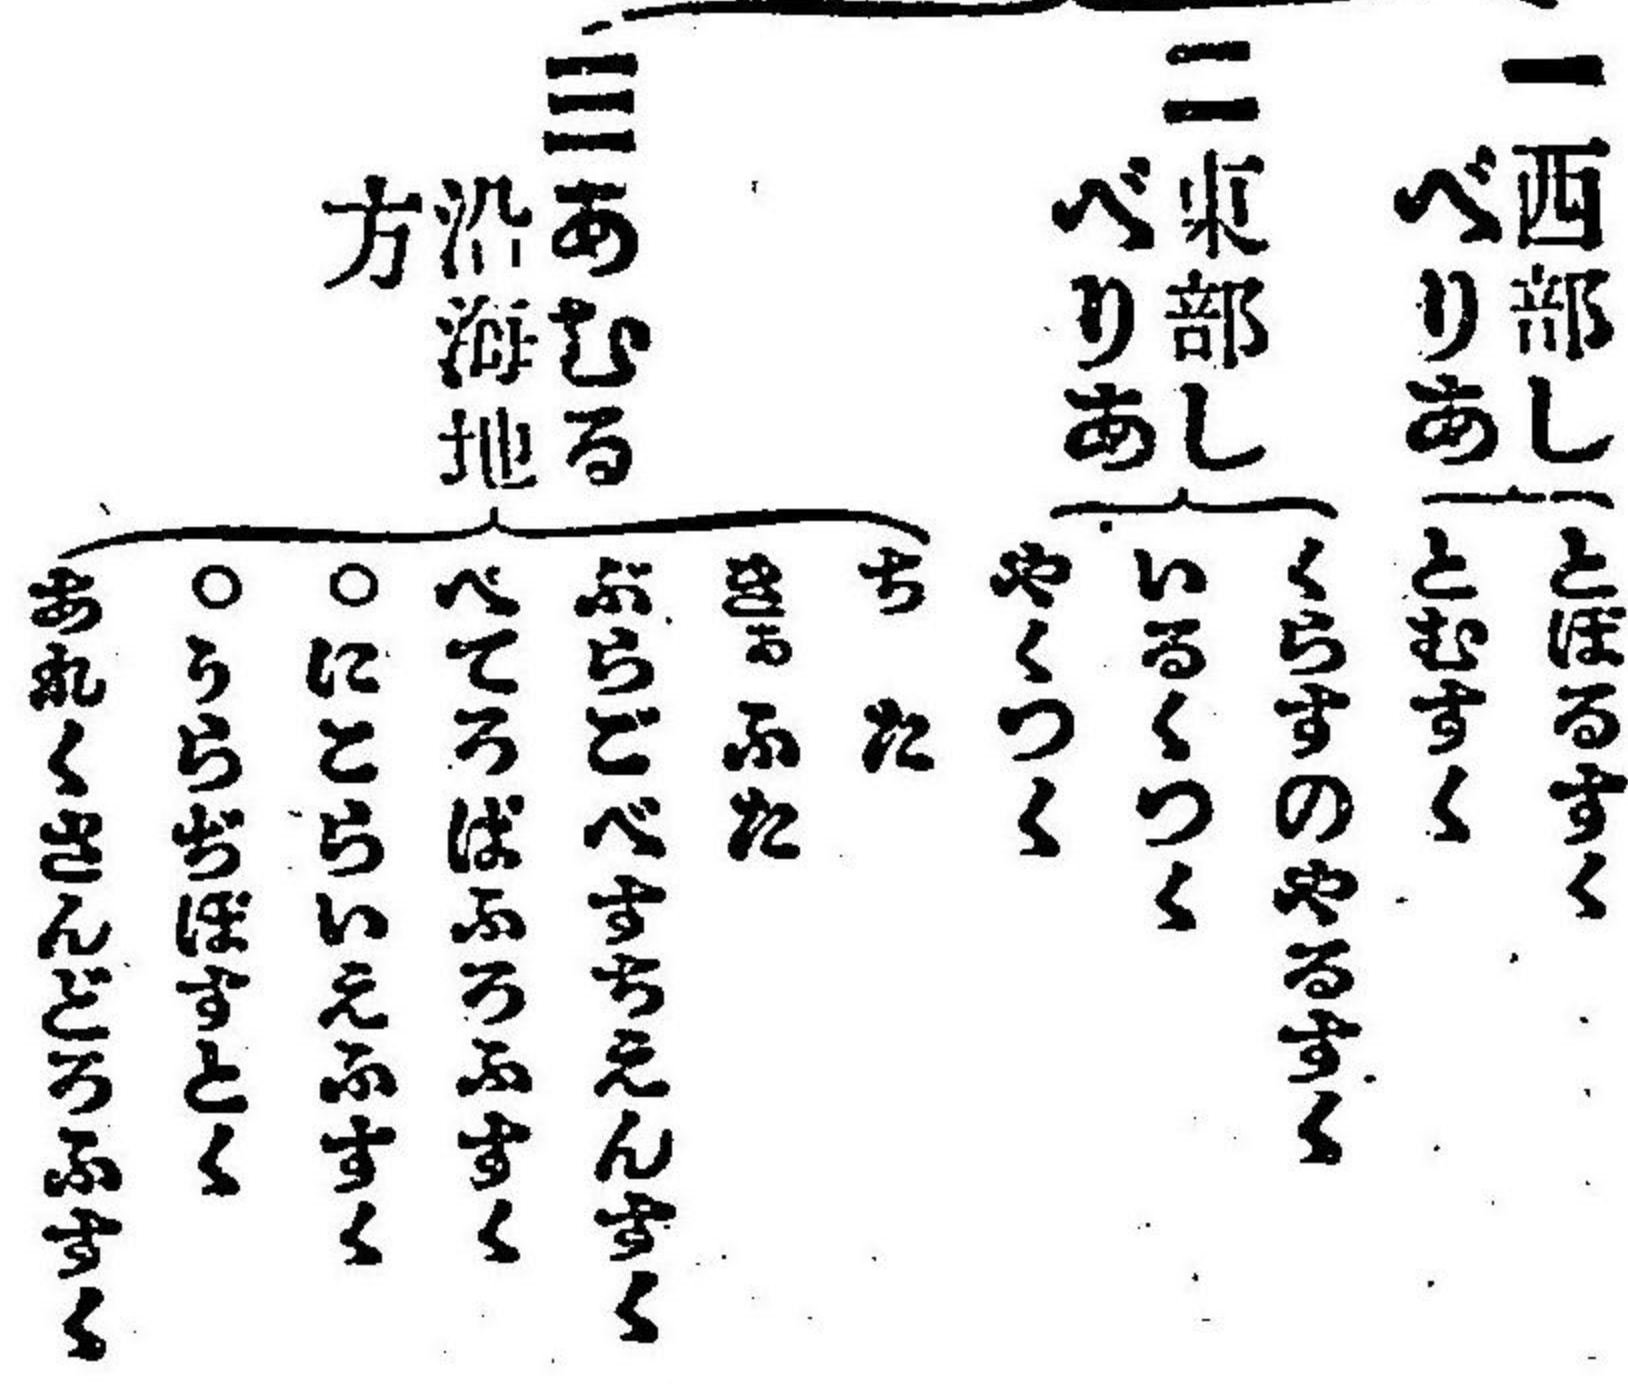 一 西部し
べりあ
とぼるすく
とむすく
二 東部し
べりあ
くらすのやるすく
いるくつく
やくつく
三 あむる
沿海地
方
ちた
きぁふた
ぶらごべすちえんすく
ぺてろぱふろふすく
○にこらいえふすく
○うらぢぼすとく
あれくさんどろふすく